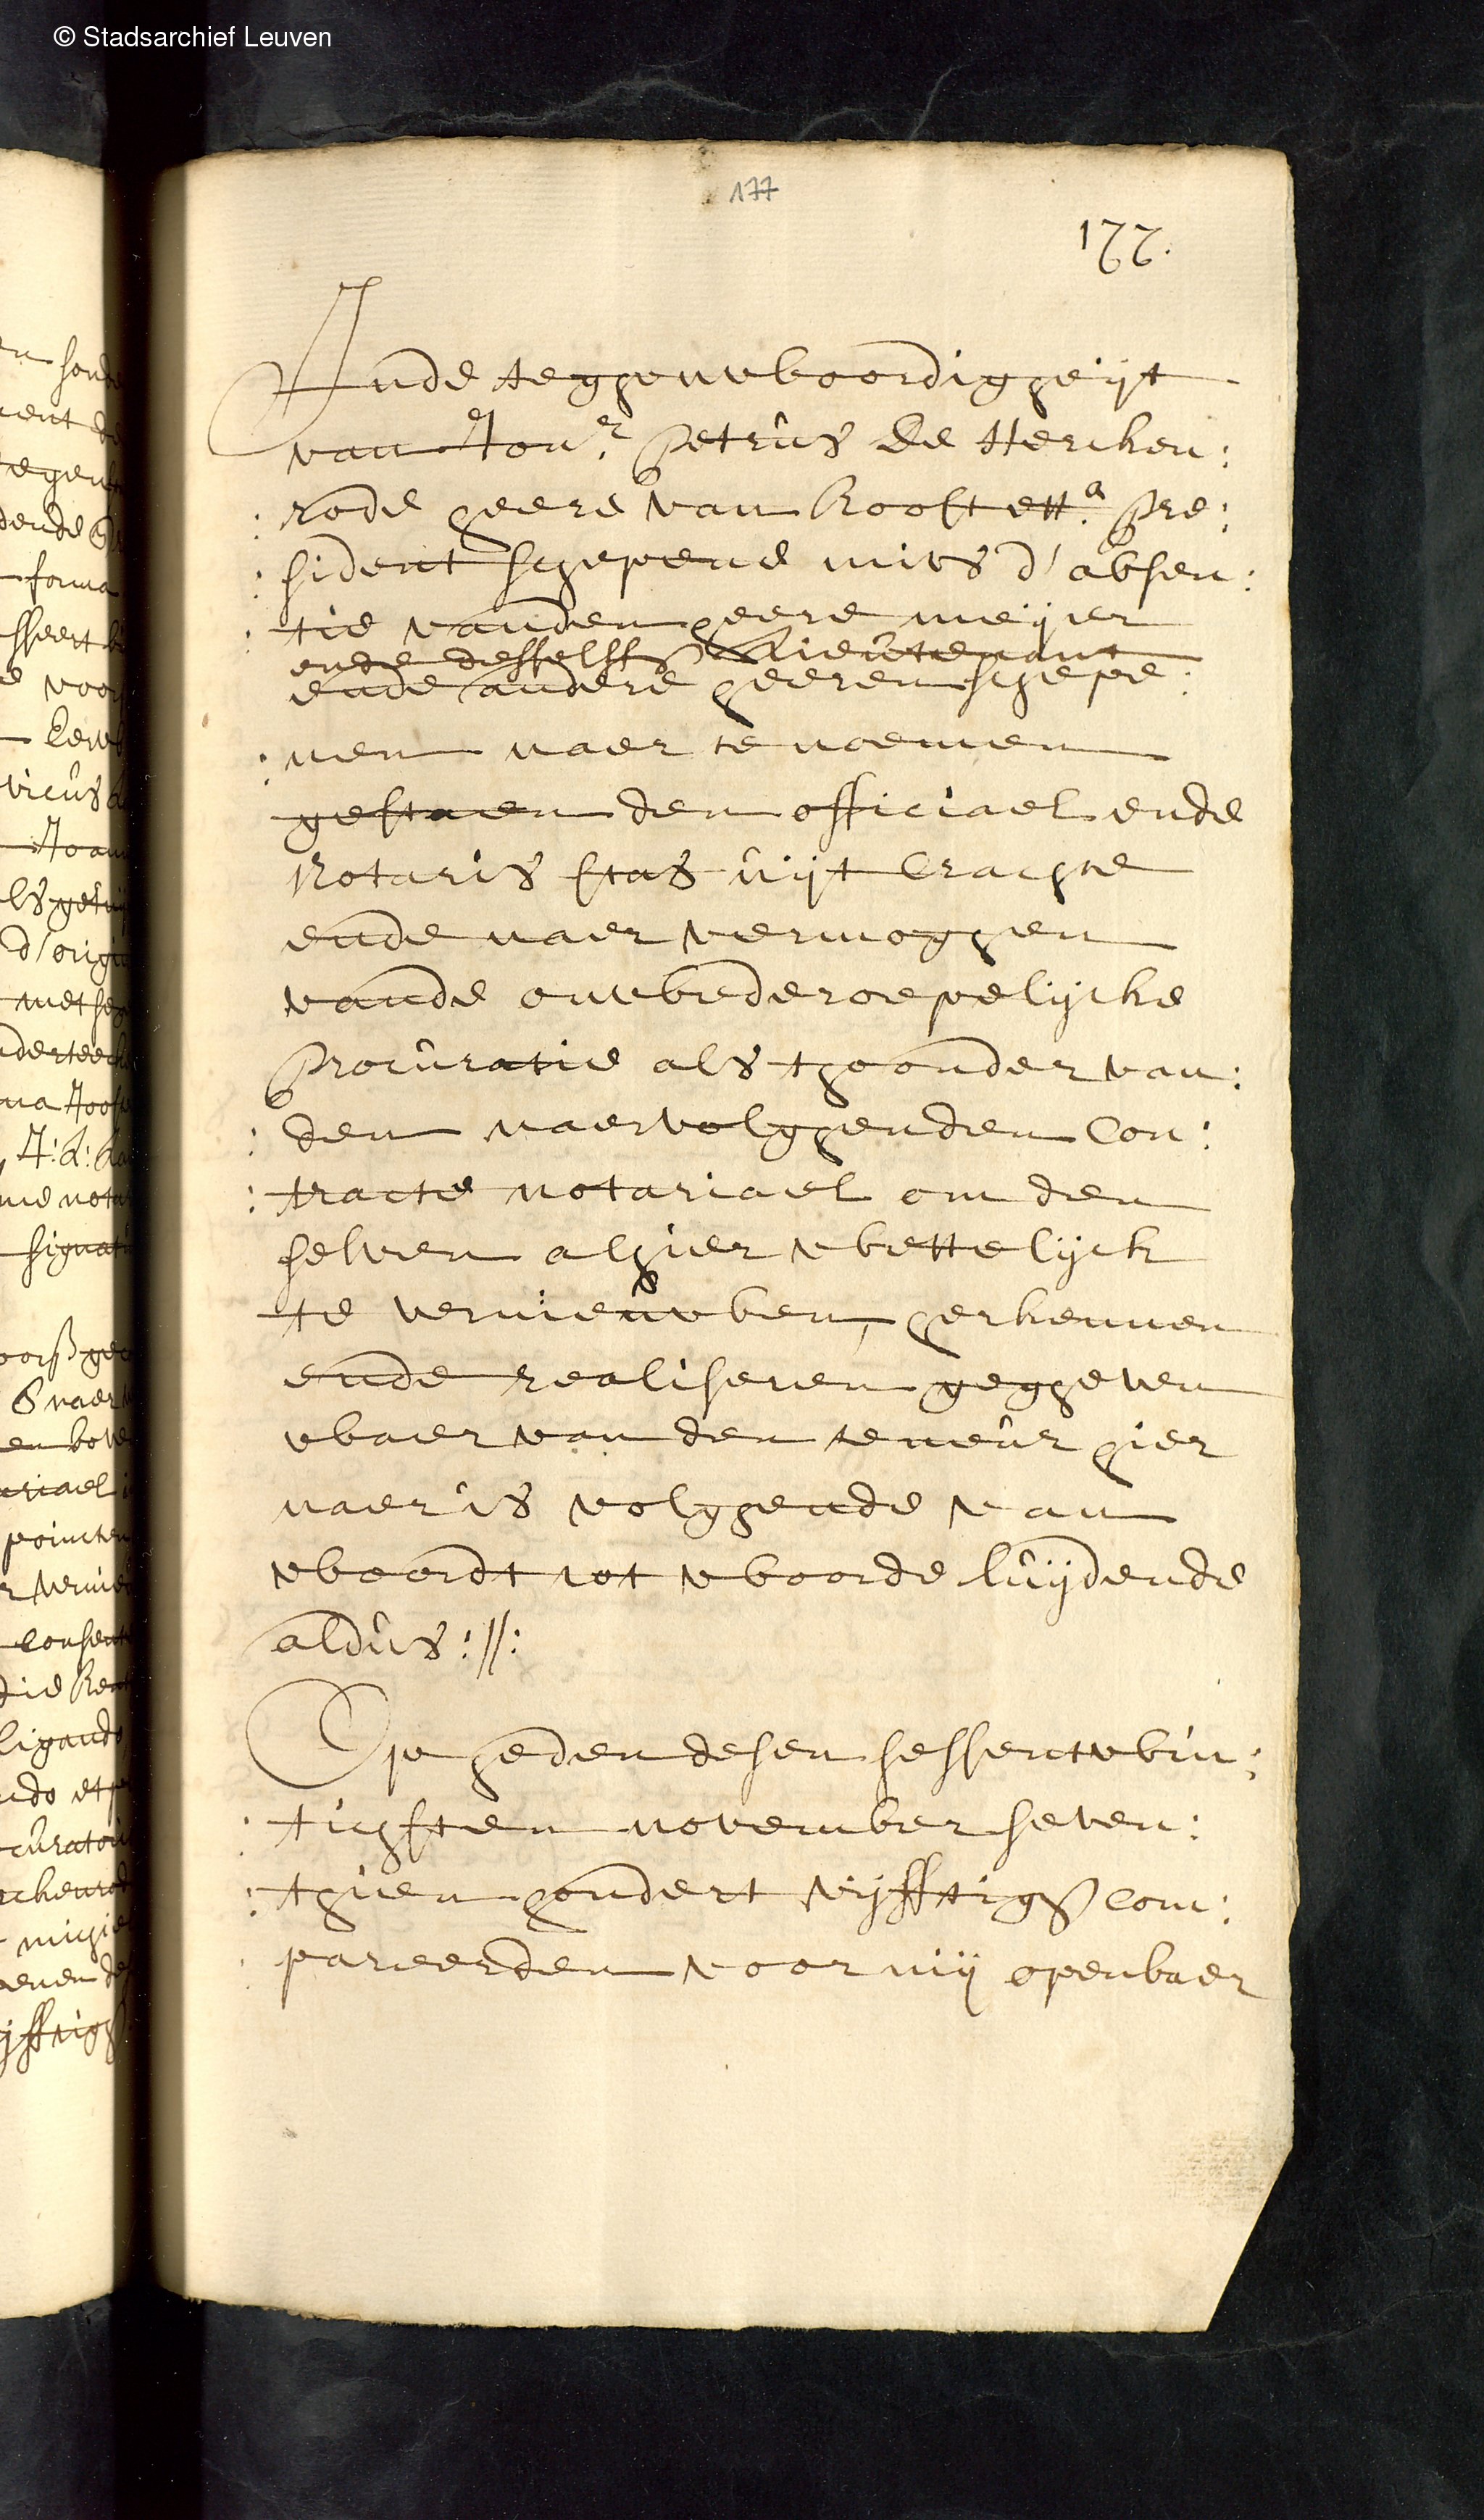 © Stadsarchief Leuven
177
177.
Inde teghenwoordigheijt
van Jonr. Petrus De Hercken:
:rode heere van Roost etta. pre:
:sident schepene mits d'absen:
:tie vanden heere meijer
ende desselfs Lieutenant
ende andere heeren schepe:
:nen naer te noemen
gestaen den officiael ende
Notaris stas uijt Crachte
ende naer vermoghen
vande onwederoepelijcke
procuratie als thoonder van:
:den naervolghenden Con:
:tracte notariael om den
selven alhier wettelijck
te vernieuwen, herkennen
ende realiseren gegheven
waer van den teneur hier
naer is volghende van
woordt tot woorde luijdende
aldus://:
Op heden desen sessentwin:
:tichsten november seven:
:thien hondert vijfftigh com:
:pareerden voor mij openbaer